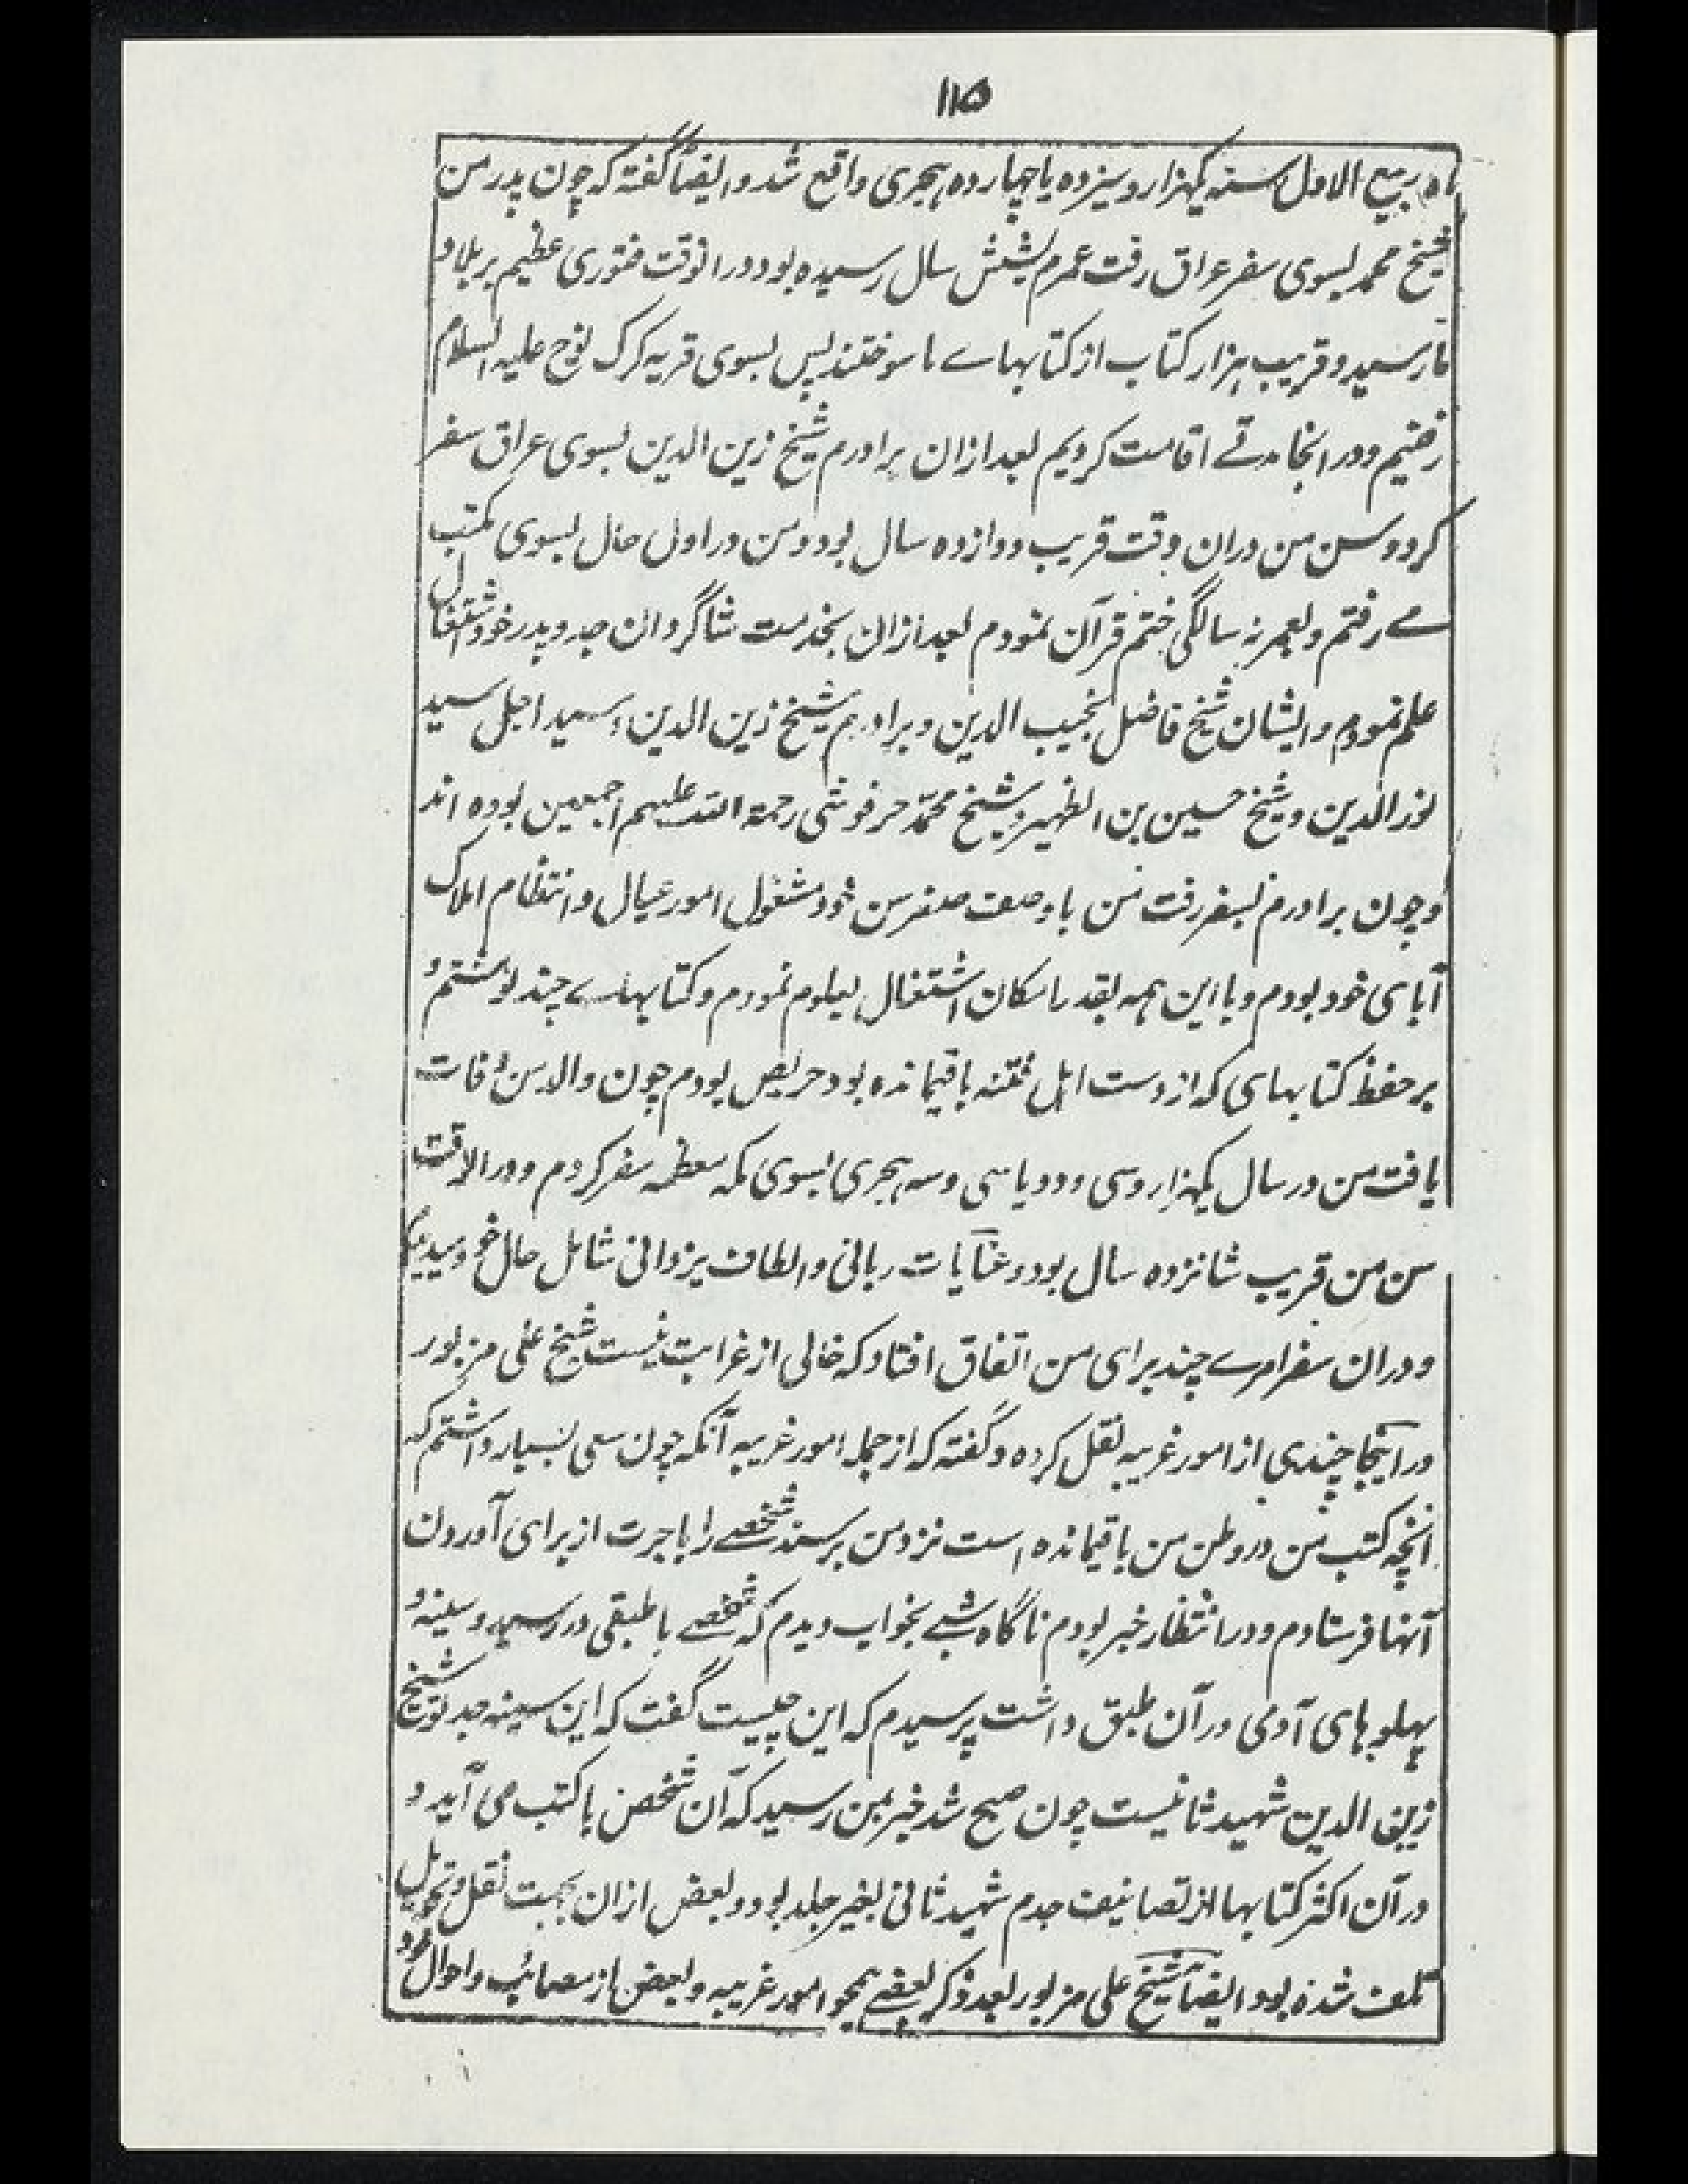 ۱۱۵
ماه ربیع الاول سنه یکهزار و سیزده یا چهارده هجری واقع شد و ایضاً گفته که چون پدر من
شیخ محمد بسوی سفر عراق رفت عمرم بشش سال رسیده بود و درانوقت فتوری عظیم بر بلاد
ما رسید و قریب هزار کتاب از کتابهاے ما سوختند پس بسوی قریه کرک نوح علیه السلام
رفتیم و در انجا مدتے اقامت کردیم بعد ازان برادرم شیخ زین الدین بسوی عراق سفر
کرد و سن من دران وقت قریب دوازده سال بود و من در اول حال بسوی مکتب
مے رفتم و بعمر نه سالگی ختم قرآن نمودم بعد ازان بخدمت شاگردان جد و پدر خود اشتغال
علم نمودم و ایشان شیخ فاضل نجیب الدین و برادرم شیخ زین الدین و سید اجل سید
نور الدین و شیخ حسین بن الظهیر و شیخ محمد حرفوشی رحمة الله علیهم اجمعین بوده اند
و چون برادرم بسفر رفت من باوصف صغر سن خود مشغول امور عیال و انتظام املاک
آبای خود بودم و با این همه بقدر امکان اشتغال بعلوم نمودم و کتابهاے چند نوشتم و
بر حفظ کتابهای که از دست اهل فتنه باقیمانده بود حریص بودم چون والد من وفات
یافت من در سال یکهزار و سی و دو یا سی و سه هجری بسوی مکه معظمه سفر کردم و در الوقت
سن من قریب شانزده سال بود و عنایات ربانی و الطاف یزدانی شامل حال خود میدیدم
و دران سفر امرے چند برای من اتفاق افتاد که خالی از غرابت نیست شیخ علی مزبور
در اینجا چندی از امور غریبه نقل کرده و گفته که از جمله امور غریبه آنکه چون سعی بسیار داشتم که
انچه کتب من در وطن من باقیمانده است نزد من برسند شخصے را باجرت از برای آوردن
آنها فرستادم و در انتظار خبر بودم ناگاه شبے بخواب دیدم که شخصے با طبقی در رسید و سینه و
پهلوهای آدمی در آن طبق داشت پرسیدم که این چیست گفت که این سینه جد تو شیخ
زین الدین شهید ثانیست چون صبح شد خبر بمن رسید که آن شخص با کتب می آید و
در آن اکثر کتابها از تصانیف جدم شهید ثانی بغیر جلد بود و بعض ازان بجهت نقل و تحویل
تلف شده بود و ایضاً شیخ علی مزبور بعد ذکر بعضے همچو امور غریبه و بعض از مصائب و احوال خود